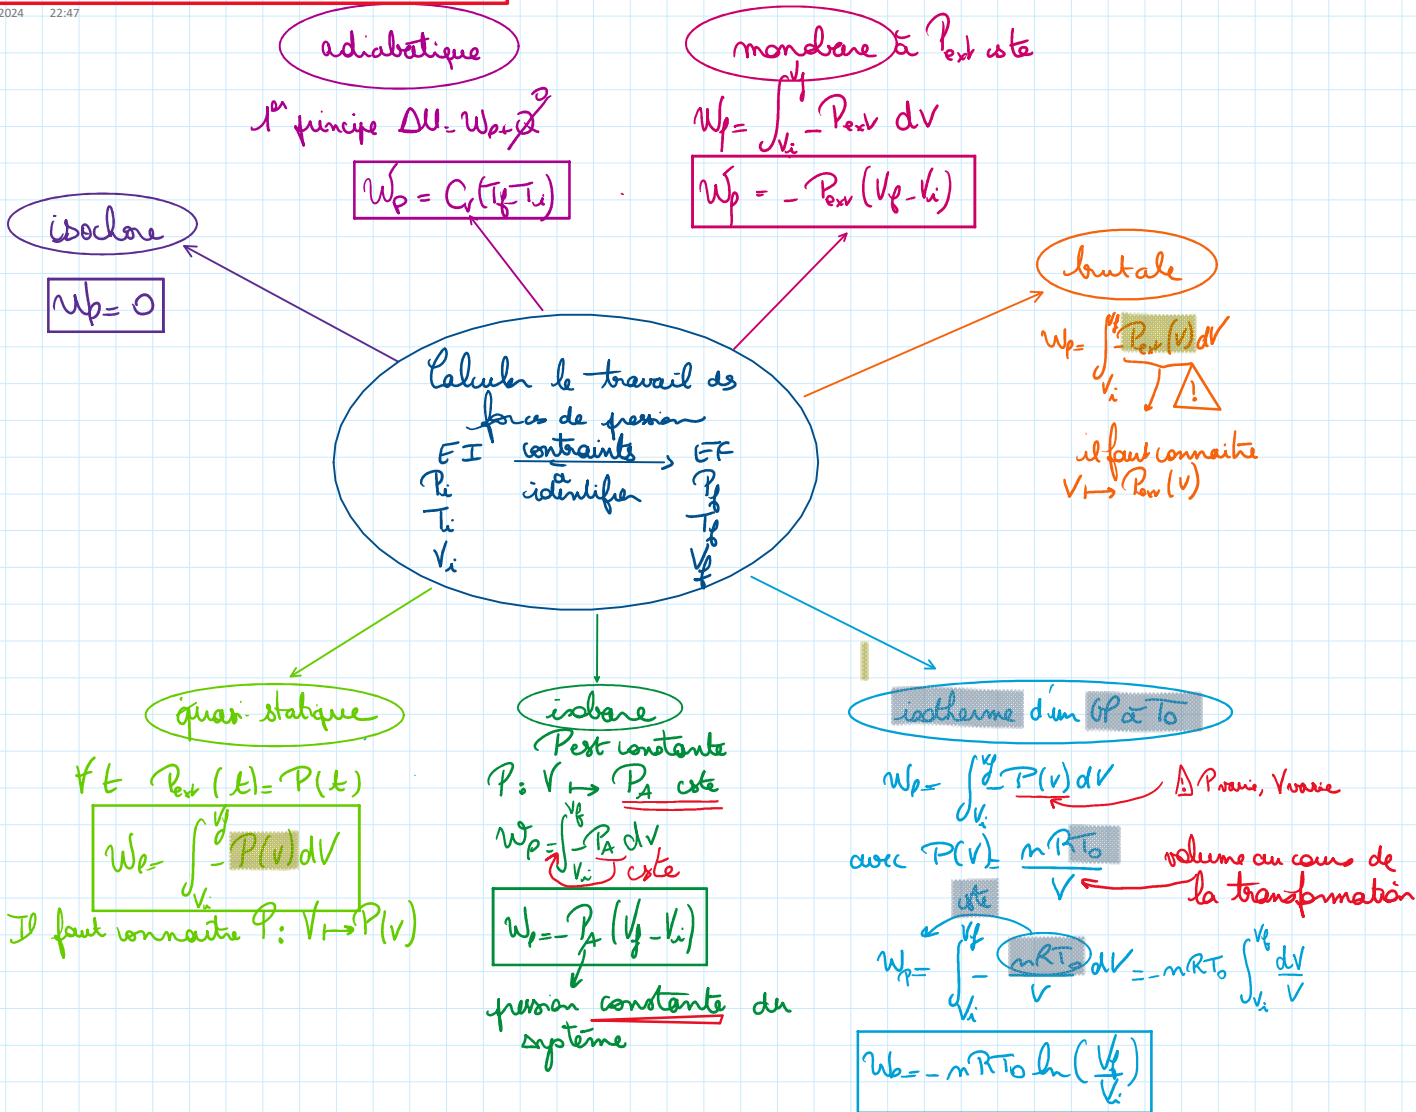 2024 22:47
adiabatique
1er principe ΔU = Wp + Q 0
Wp = Cv (Tf - Ti)
monobare à Pext cste
Wp = ∫Vi Vf - Pext dV
Wp = - Pext (Vf - Vi)
isochore
Wp = 0
brutale
Wp = ∫Vi Vf - Pext (V) dV
!
il faut connaître
V ↦ Pext (V)
Calculer le travail ds
forces de pression
EI contraints EF
Pi à identifier Pf
Ti Tf
Vi Vf
quasi-statique
∀ t Pext (t) = P(t)
Wp = ∫Vi Vf - P(V) dV
Il faut connaître P : V ↦ P(V)
isobare
P est constante
P : V ↦ PA cste
Wp = ∫Vi Vf - PA dV
cste
Wp = - PA (Vf - Vi)
pression constante du
système
isotherme d'un GP à T0
Wp = ∫Vi Vf - P(V) dV
! P varie, V varie
avec P(V) = nRT0 / V
volume au cours de
la transformation
cste
Wp = ∫Vi Vf - nRT0 / V dV = - nRT0 ∫Vi Vf dV / V
Wp = - nRT0 ln (Vf / Vi)